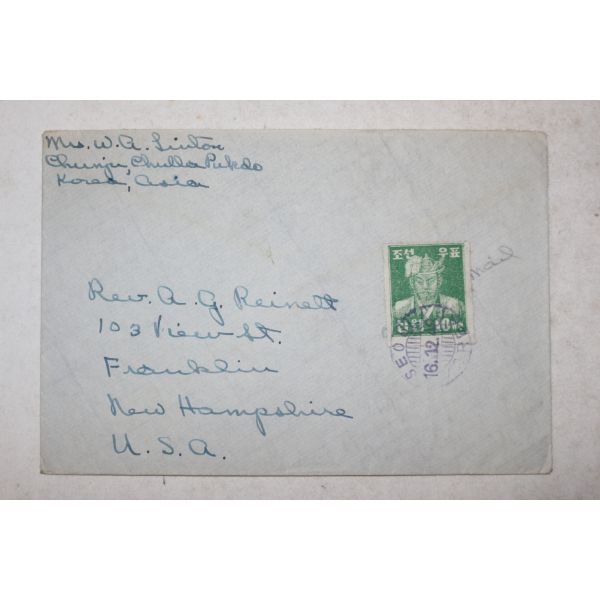 Mrs. W. A. Linton
Chunju, Chulla Pukdo
Korea, Asia
조선 우표
10
mail
SEO
16.12.
Rev. A. G. Reinett
103 View St.
Franklin
New Hampshire
U. S. A.